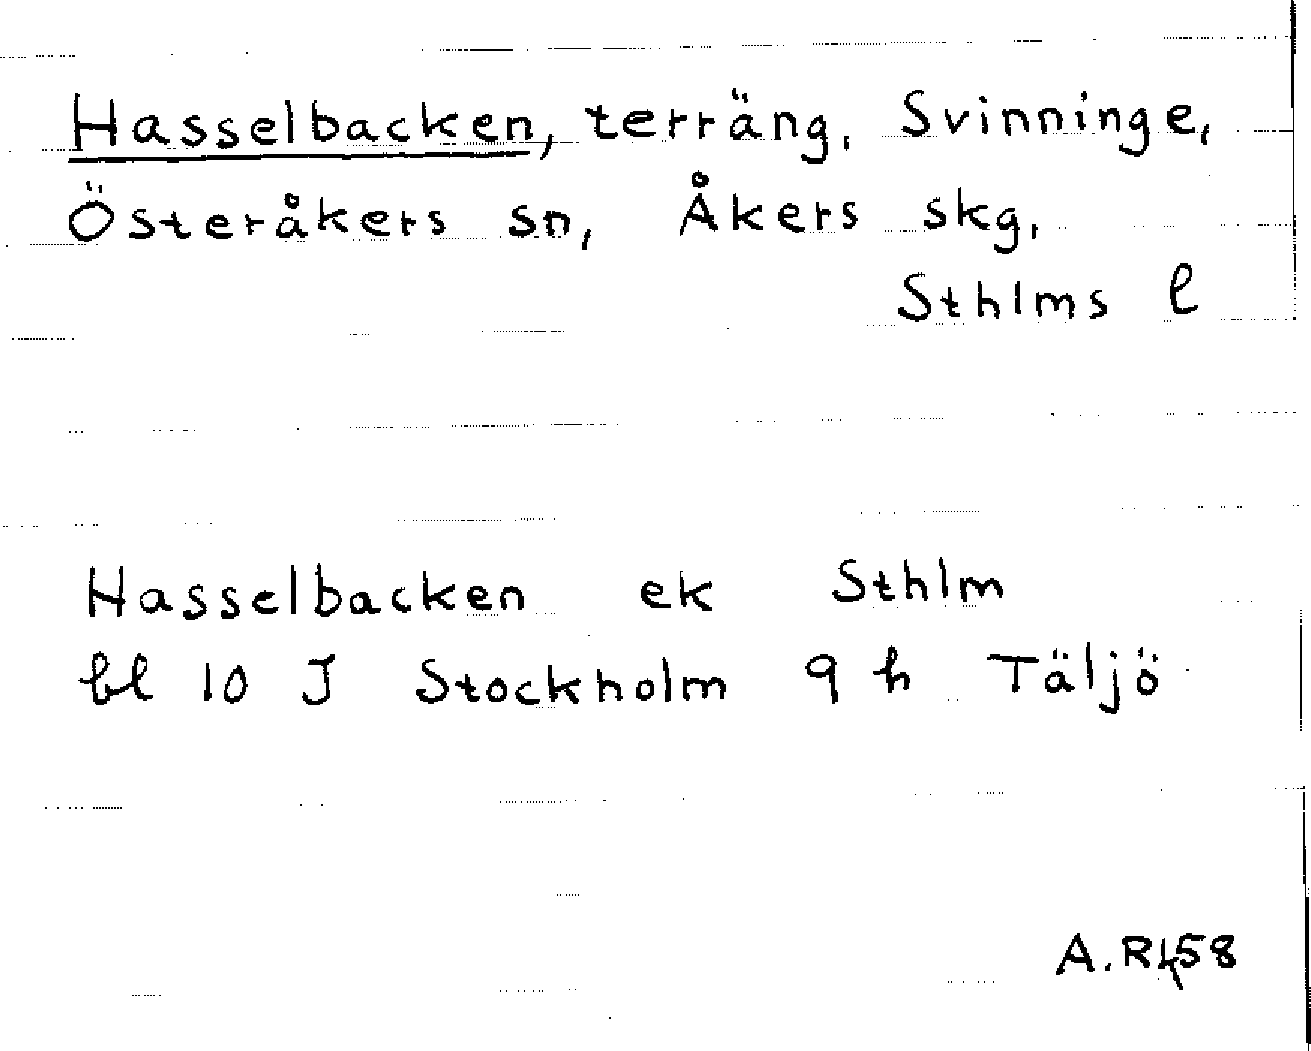 Hasselbacken, terräng, Svinninge,
Österåkers sn, Åkers skg,
Sthlms l
Hasselbacken ek Sthlm
bl 10 J Stockholm 9 h Täljö
A. R 58